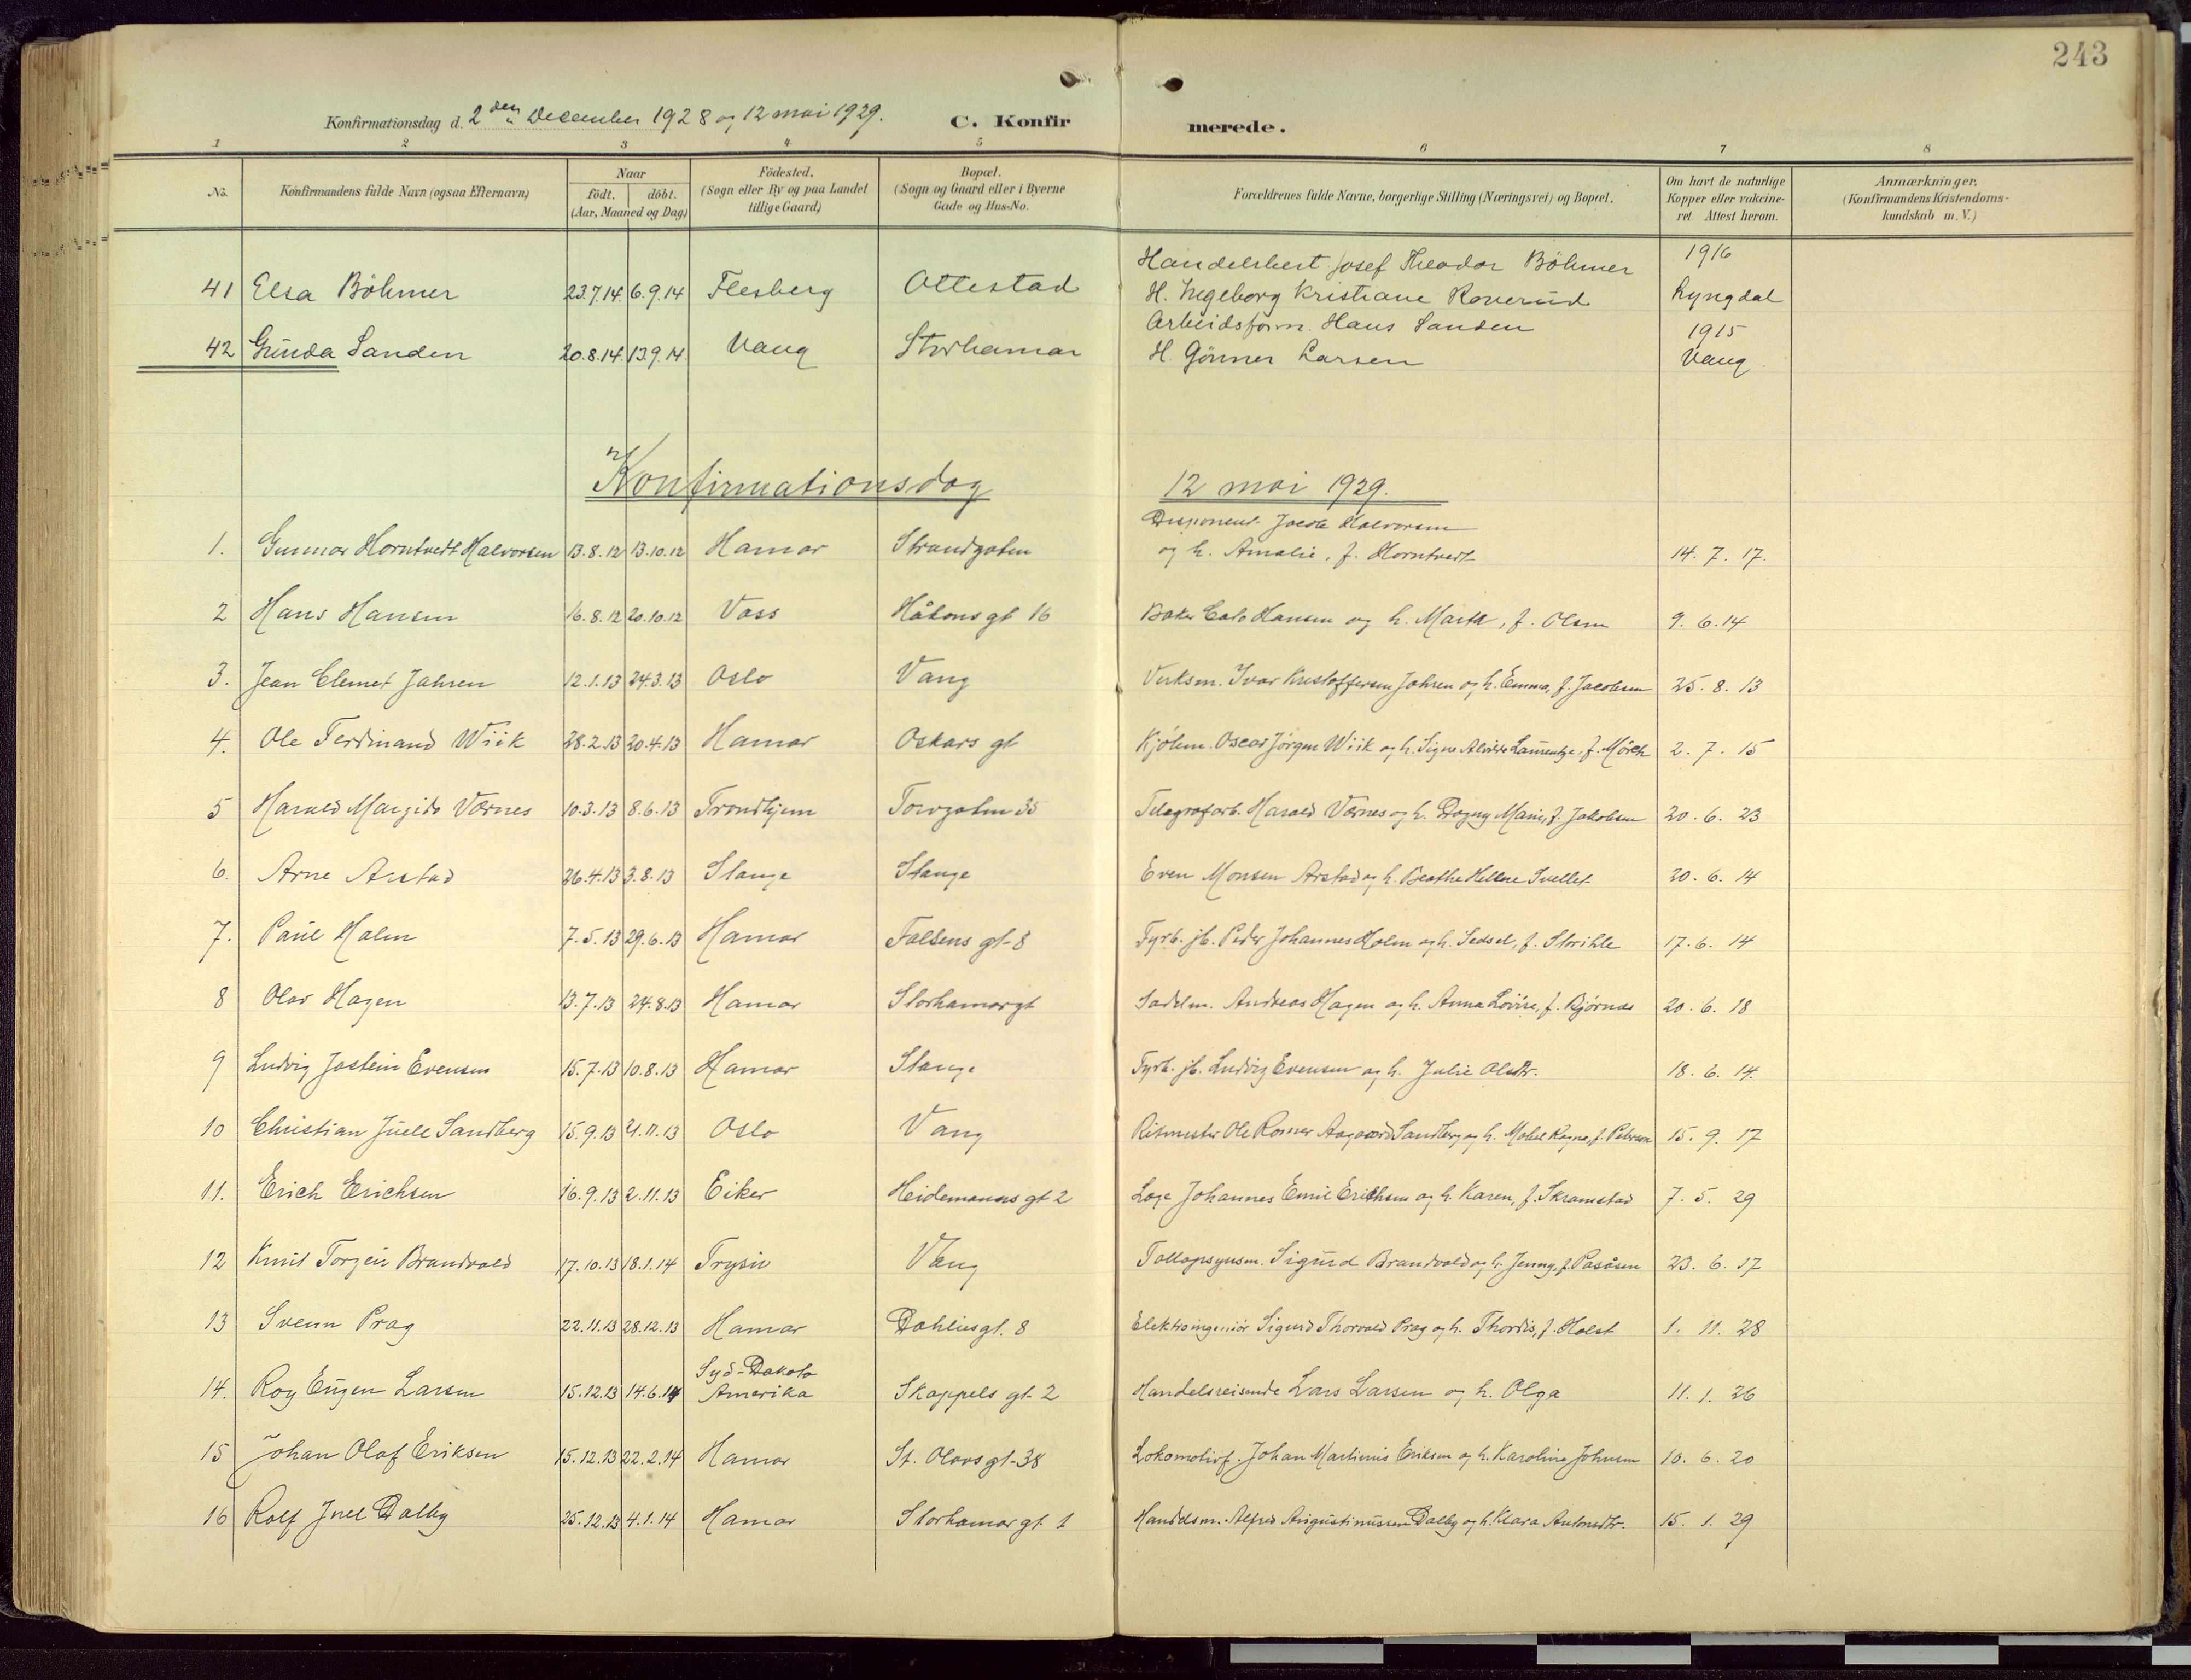 243
Konfirmationsdag d. 2den December 1928 og 12 mai 1929.
C. Konfirmerede.
1 2 3 4 5 6 7 8
No.
Konfirmandens fulde Navn (ogsaa Efternavn)
Naar
födt. döbt.
(Aar, Maaned og Dag)
Födested.
(Sogn eller By og paa Landet
tillige Gaard)
Bopæl.
(Sogn og Gaard eller i Byerne
Gade og Hus-No.
Forældrenes fulde Navne, borgerlige Stilling (Næringsvei) og Bopæl.
Om havt de naturlige
Kopper eller vakcine-
ret. Attest herom.
Anmærkninger.
(Konfirmandens Kristendoms-
kundskab m. V.)
Handelsbest. Josef Theodor Böhmer 1916
41 Elsa Böhmer 23.7.14 6.9.14 Flesberg Ottestad H. Ingeborg Kristiane Roverud Lyngdal
Arbeidsform. Hans Sanden 1915
42 Gunda Sanden 20.8.14 13.9.14 Vang Storhamar H. Gönner Larsen Vang
Konfirmationsdag 12 mai 1929.
Disponent Jacob Halvorsen
1. Gunnar Horntvedt Halvorsen 13.8.12 13.10.12 Hamar Strandgaten og h. Amalie, f. Horntvedt 14. 7. 17.
2 Hans Hansen 16.8.12 20.10.12 Voss Håkons gt 16 Baker Carlo Hansen og h. Marta, f. Olsen 9. 6. 14
3. Jean Clemet Jahren 12.1.13 24.3.13 Oslo Vang Verksm. Ivar Kristoffersen Jahren og h. Emma, f. Jacobsen 25. 8. 13
4. Ole Ferdinand Wiik 28.2.13 20.4.13 Hamar Oskars gt Kjöbm. Oscar Jörgen Wiik og h. Signe Laurentze, f. Mörch 2. 7. 15
5 Harald Margido Værnes 10.3.13 8.6.13 Trondhjem Torvgaten 35 Telegrafarb. Harald Værnes og h. Dagny Marie, f. Jakobsen 20. 6. 23
6. Arne Arstad 26.4.13 3.8.13 Stange Stange Even Monsen Arstad og h. Beathe Helene Tvellet 20. 6. 14
7. Paul Holm 7.5.13 29.6.13 Hamar Falsens gt 8 Fyrb. jb. Peder Johannes Holm og h. Sedsel, f. Storihle 17. 6. 14
8 Olav Hagen 13.7.13 24.8.13 Hamar Storhamar gt Sadelm. Andreas Hagen og h. Anna Lovise, f. Björnås 20. 6. 18
9 Ludvig Jostein Evensen 15.7.13 10.8.13 Hamar Stange Fyrb. jb. Ludvig Evensen og h. Julie Olsdtr. 18. 6. 14.
10 Christian Juell Sandberg 15.9.13 21.11.13 Oslo Vang Ritmester Ole Romer Aagaard Sandberg og h. Mabel Ragna, f. Peterson 15. 9. 17
11. Erich Erichsen 16.9.13 2.11.13 Eiker Heidemanns gt 2 Læge Johannes Emil Erichsen og h. Karen, f. Skramstad 7. 5. 29
12 Knut Torgeir Brandvold 17.10.13 18.1.14 Trysil Vang Tollopsynsm. Sigurd Brandvold og h. Jenny, f. Pasåsen 23. 6. 17
13 Svenn Prag 22.11.13 28.12.13 Hamar Dahlius gt. 8 Elektroingeniör Sigurd Thorvald Prag og h. Thordis, f. Holst 1. 11. 28
Syd-Dakota
14. Roy Eugen Larsen 15.12.13 14.6.14 Amerika Skappels gt 2 Handelsreisende Lars Larsen og h. Olga 11. 1. 26
15 Johan Olaf Eriksen 15.12.13 22.2.14 Hamar St. Olavs gt 38 Lokomotivf. Johan Martinius Eriksen og h. Karoline Johnsen 10. 6. 20
16 Rolf Juel Dalby 25.12.13 4.1.14 Hamar Storhamar gt 1 Handelsm. Alfred Augustinussen Dalby og h. Klara Antonsdtr. 15. 1. 29